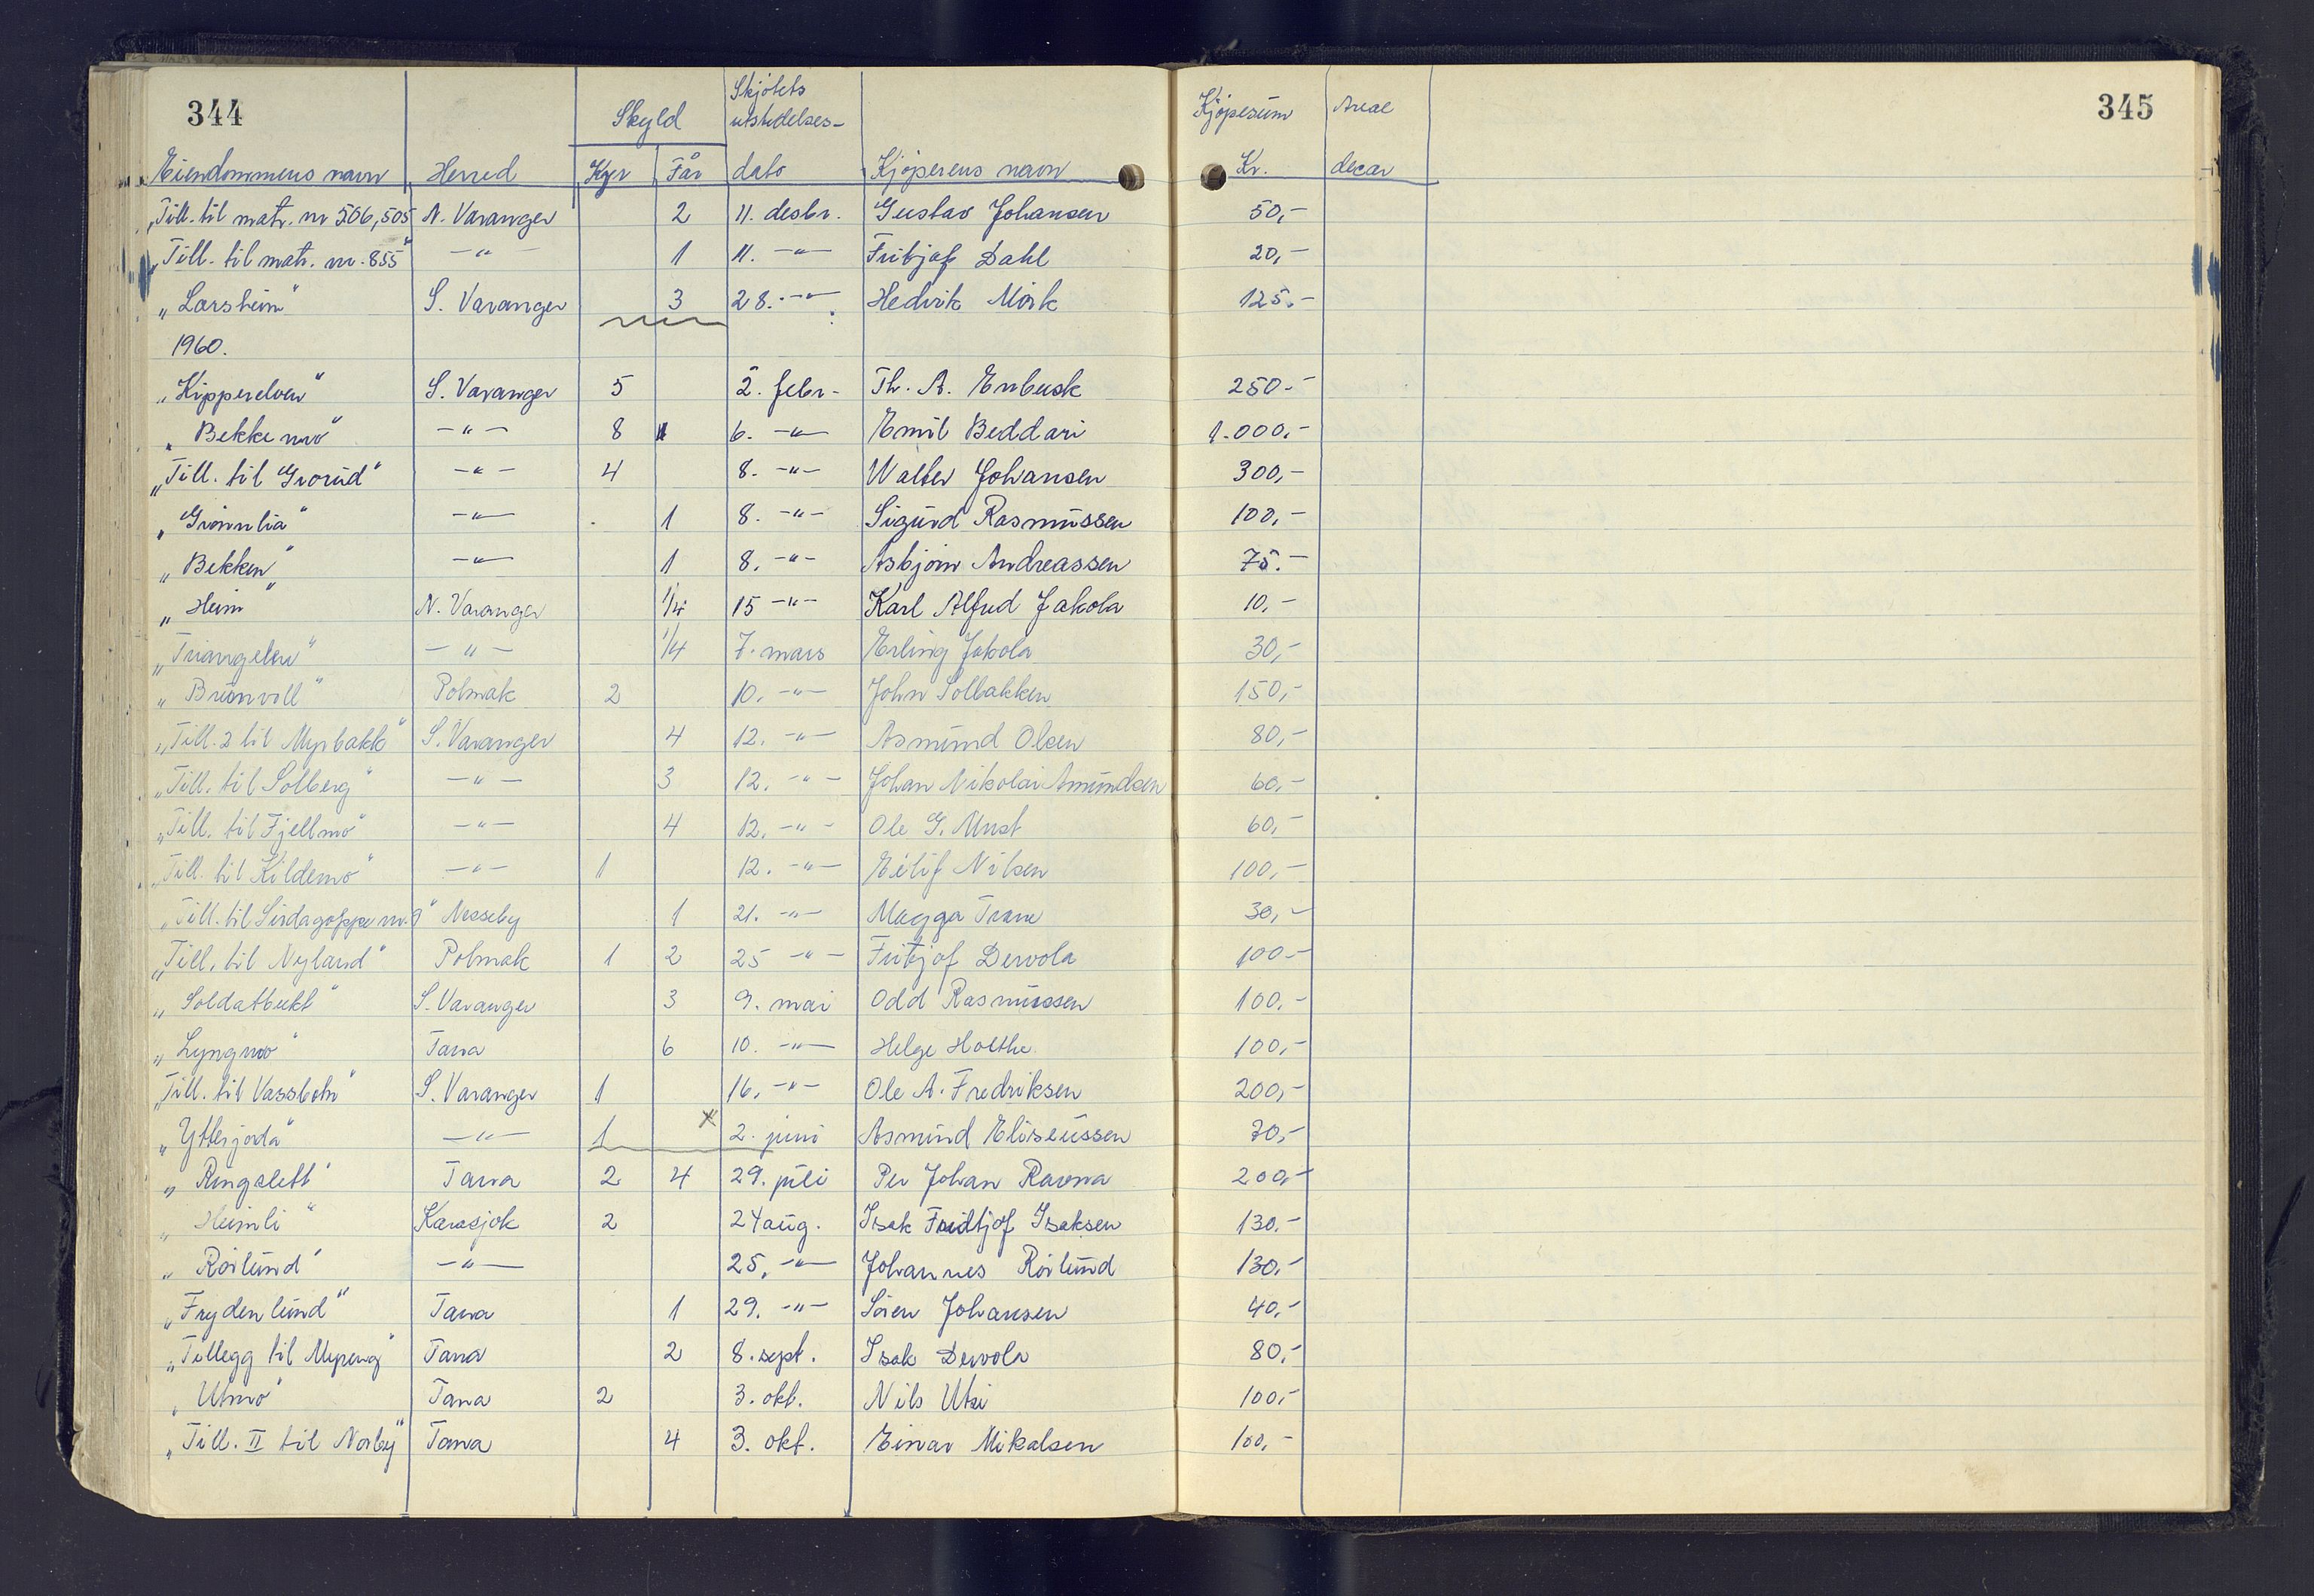 344
345
Skjötets
Skyld utstedelses- Kjøpesum Areal
Eiendommens navn Herred Kyr Får dato Kjøperens navn Kr. dekar
„Till. til matr. nr 506,505 N. Varanger 2 11. desbr. Gustav Johansen 50,-
„Till. til matr. nr. 855" -"- 1 11. -"- Fritjof Dahl 20,-
„Larsheim" S. Varanger 3 28. -"- Hedvik Mörk 125.-
1960.
„Kipperelven" S. Varanger 5 2. febr- Th. A. Enbusk 250.-
„Bekkemo" -"- 8 6. -"- Emil Beddari 1.000,-
„Till. til Grorud" -"- 4 8. -"- Walter Johansen 300,-
„Grönnlia" -"- 1 8. -"- Sigurd Rasmussen 100,-
„Bekken" -"- 1 8. -"- Asbjörn Andreassen 75.-
„Heim" N. Varanger 1/4 15 -"- Karl Alfred Jakola 10,-
„Triangelen" -"- 1/4 7. mars Erling Jakola 30,-
„Brunvoll" Polmak 2 10. -"- John Solbakken 150,-
„Till. 2 til Myrbakk" S. Varanger 4 12. -"- Asmund Olsen 80,-
„Till. til Solberg" -"- 3 12. -"- Johan Nikolai Amundsen 60,-
„Till. til Fjellmo" -"- 4 12. -"- Ole G. Must 60,-
„Till. til Kildemo" -"- 1 12. -"- Eilif Nilsen 100,-
„Till. til Sirdagoppe nr. 9" Nesseby 1 21. -"- Magga Trane 30,-
„Till. til Nyland" Polmak 1 2 25 -"- Fritjof Dervola 100-
„Soldatbukt" S. Varanger 3 9. mai Odd Rasmussen 100,-
„Lyngmo" Tana 6 10. -"- Helge Holthe 100,-
„Till. til Vassbotn" S. Varanger 1 16. -"- Ole A. Fredriksen 200,-
„Ytterjorda" -"- 1 x 2. juni Asmund Eliseussen 30,-
„Ringslett" Tana 2 4 29. juli Per Johan Ravna 200,-
„Heimli" Karasjok 2 24 aug. Isak Fridtjof Isaksen 130.-
„Rörlund" -"- 25. -"- Johannes Rörlund 130,-
„Frydenlund" Tana 1 29. -"- Sören Johansen 40,-
„Tillegg til Myreng" Tana 2 8. sept. Isak Dervola 80,-
„Utmo" Tana 2 3. okt. Nils Utsi 100,-
„Till. II til Norby" Tana 4 3. okt. Einar Mikalsen 100,-